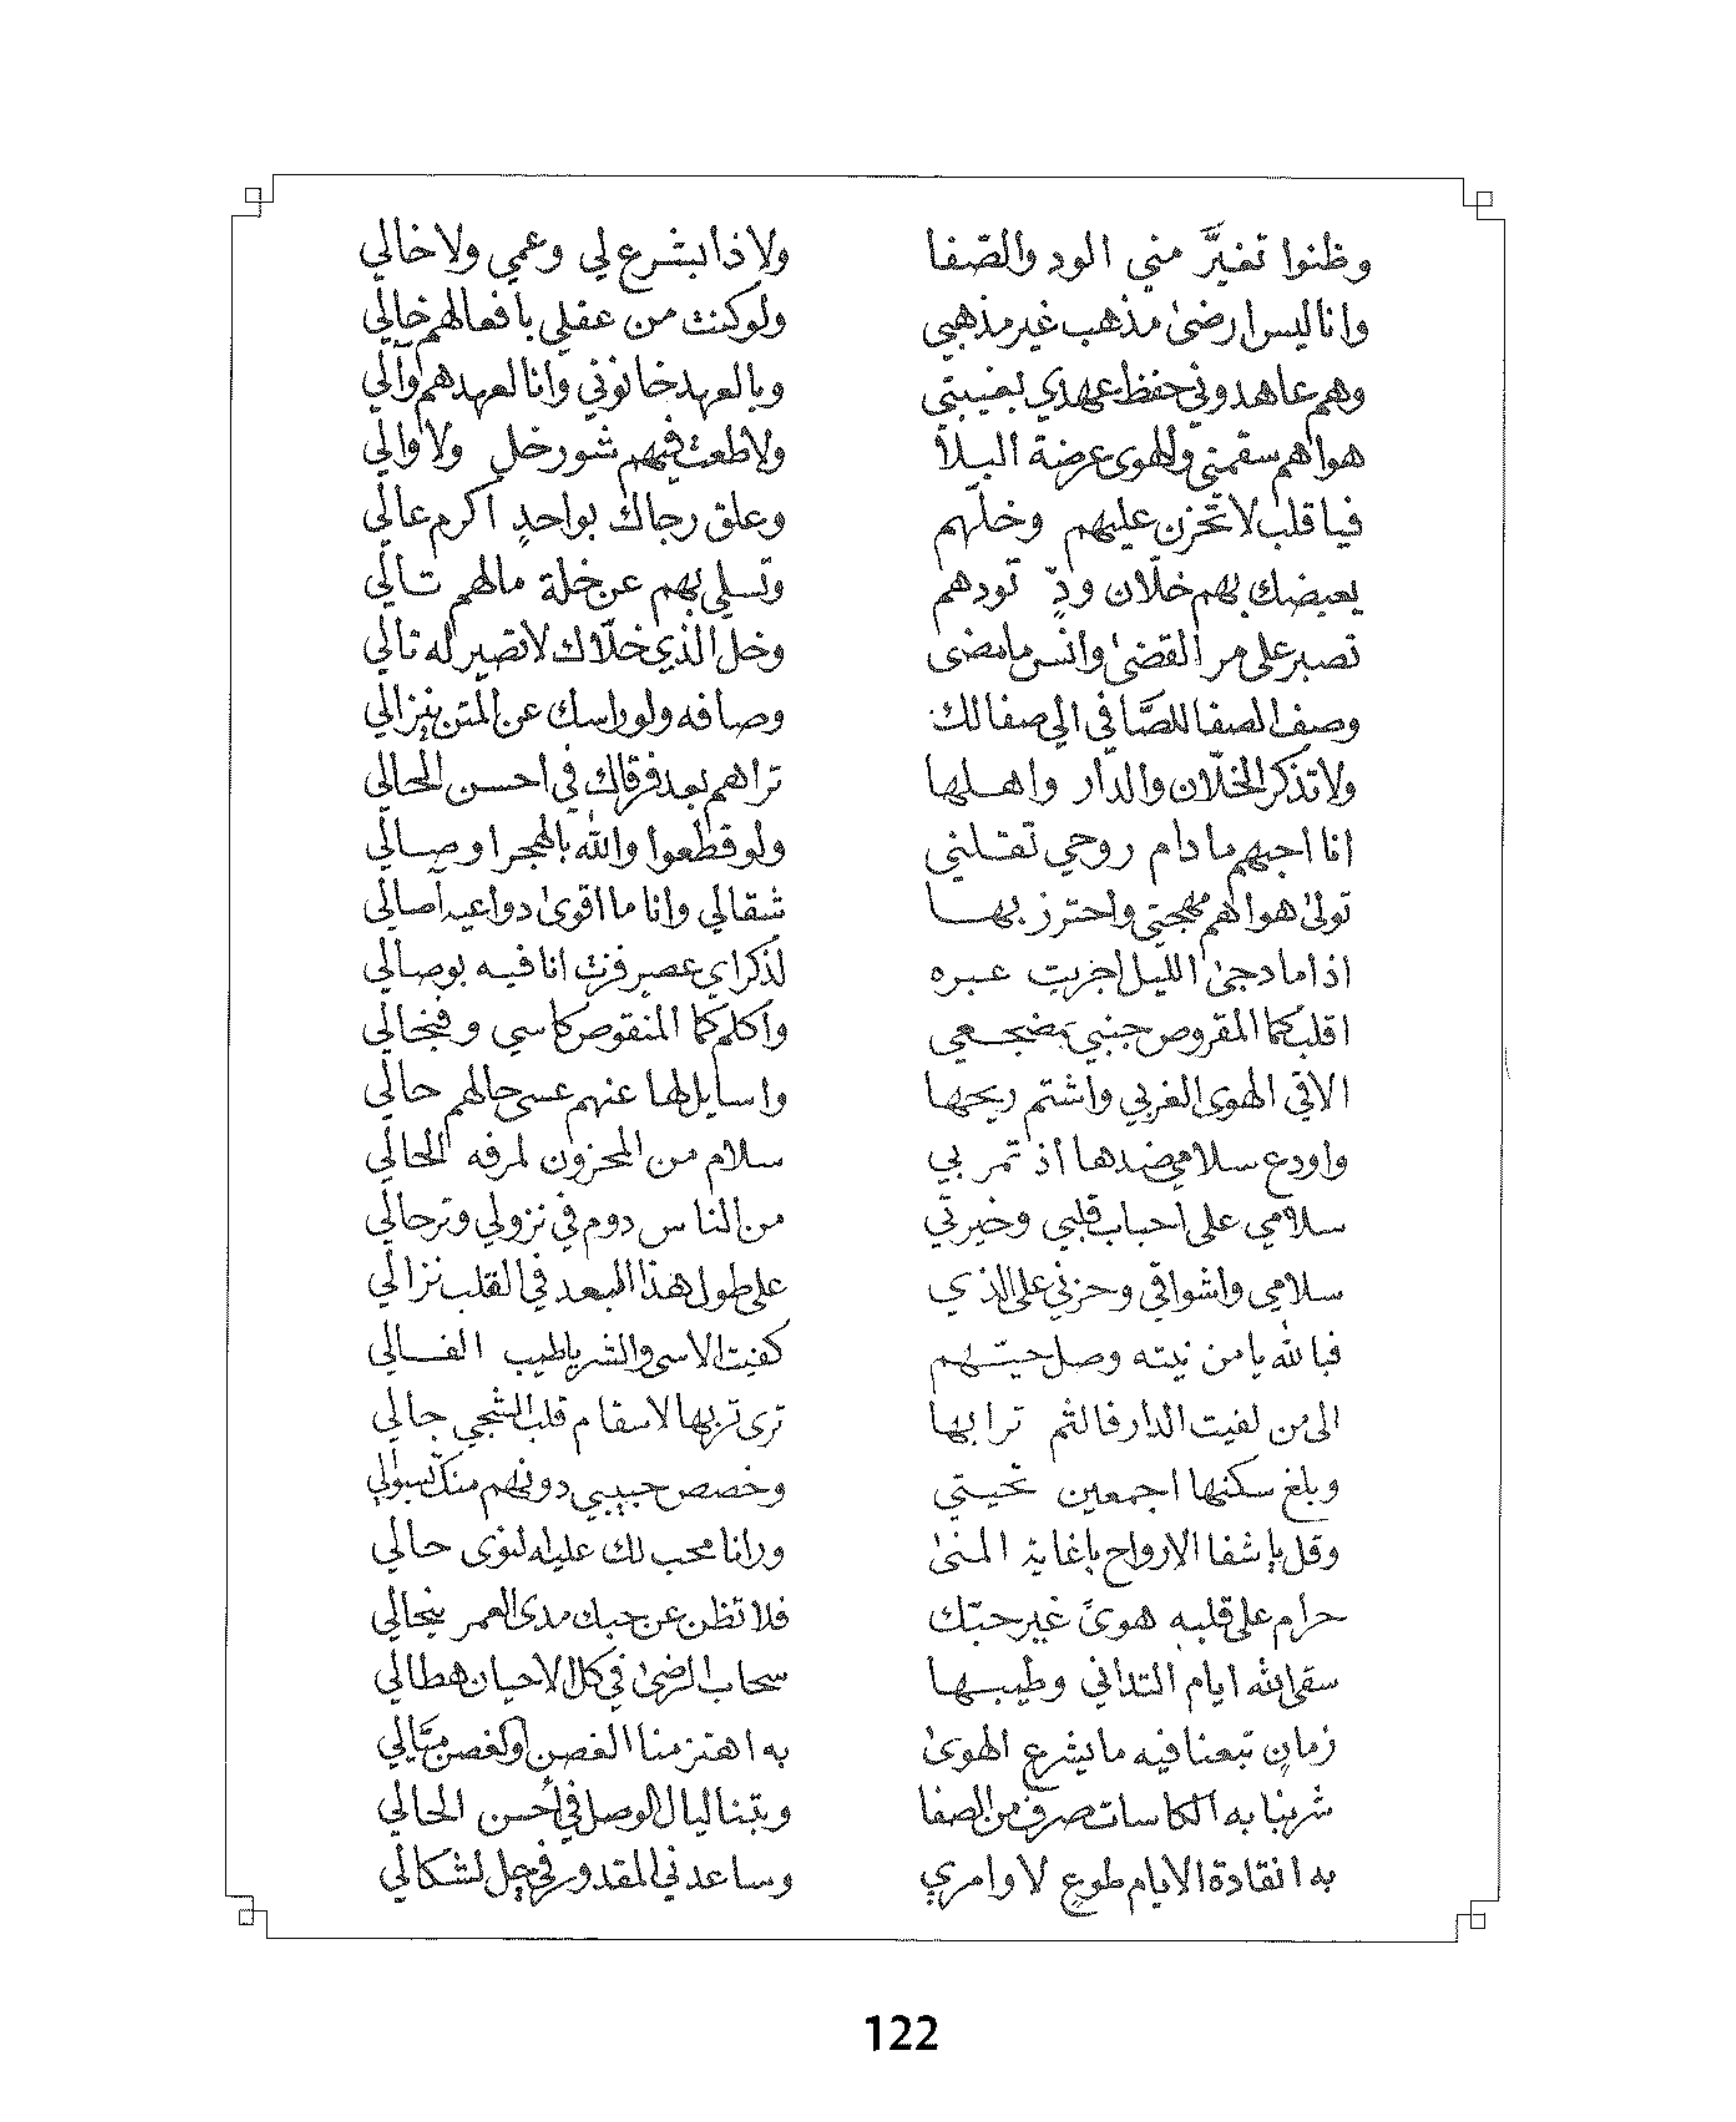 وظنوا تغيَّر مني الود والصّفا ولا ذا بشرع لي وعمي ولا خالي
وانا ليس ارضىٰ مذهب غير مذهبي ولو كنت من عقلي بافعالهم خالي
وهم عاهدوني حفظ عهدي بغيبتي وبالعهد خانوني وانا لعهدهم وآلي
هواهم سقمني والهوى عرضة البلا ولا طعت فيهم شور خل ولا والي
فيا قلب لا تحزن عليهم وخلّهم وعلق رجاك بواحدٍ اكرم عالي
يعيضك بهم خلّان ودٍّ تودهم وتسلي بهم عن خلة مالهم تالي
تصبر على مر القضىٰ وانس ما مضى وخل الذي خلّاك لا تصير له تالي
وصف الصفا للصَّافي الي صفا لك وصافه ولو راسك عن المتن ينزالي
ولا تذكر الخلّان والدار واهلها تراهم بعد فرقاك في احسن الحالي
انا احبهم ما دام روحي تقلني ولو قطعوا والله بالهجر اوصالي
تولىٰ هواهم مهجتي واحترز بها شقالي وانا ما اقوىٰ دواعيه آصالي
اذا ما دجىٰ الليل اجريت عبره لذكراي عصر فزت انا فيه بوصالي
اقلب كما المقروص جنبي بمضجعي واكلم كما المنقوص كاسي وفنجالي
الاقي الهوى الغربي واشتم ريحها واسايل لها عنهم عسى حالهم حالي
واودع سلامي ضدها اذ تمر بي سلام من المحزون لمرفه الحالي
سلامي على احباب قلبي وخيرتي من الناس دوم في نزولي وترحالي
سلامي واشواقي وحزني على الذي على طول هذا البعد في القلب نزالي
فبالله يا من نيته وصل حيّهم كفيت الاسى والشر يا طيب الفالي
الى من لفيت الدار فالثم ترابها ترى تربها لاسقام قلب الشجي جالي
وبلغ سكنها اجمعين تحيتي وخصص حبيبي دونهم منك بسوالي
وقل يا شفا الارواح يا غاية المنىٰ ورانا محب لك عليله لنوى حالي
حرام على قلبه هوىً غير حبّك فلا تظن عن حبك مدى العمر ينجالي
سقى الله ايام التداني وطيبها سحاب الرضىٰ في كل الاحيان هطالي
زمانٍ تبعنا فيه ما يشرع الهوىٰ به اهتز منا الغصن او كغصن ميّالي
شربنا به الكاسات صرف من الصفا وبتنا ليال الوصل في أحسن الحالي
به انقادة الايام طوعٍ لاوامري وساعدني المقدور في حل لشكالي
122